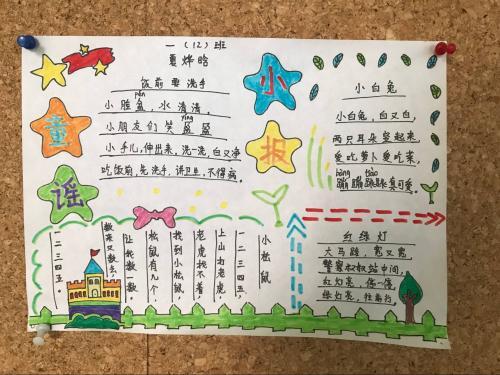 一（12）班
夏烨晗
童
谣
小
报
饭前要洗手
pén
小脸盆，水清清，
yíng
小朋友们笑盈盈
小手儿，伸出来，洗一洗，白又净
吃饭前，先洗手，讲卫生，不得病。
小白兔
小白兔，白又白，
两只耳朵竖起来，
爱吃萝卜爱吃菜，
bèng tiào
蹦蹦跳跳真可爱。
小松鼠
一二三四五，
上山打老虎，
老虎找不着，
找到小松鼠，
松鼠有几个，
让我数一数，
数来又数去，
一二三四五。
红绿灯
大马路，宽又宽，
警察叔叔站中间，
红灯亮，停一停，
绿灯亮，往前行。